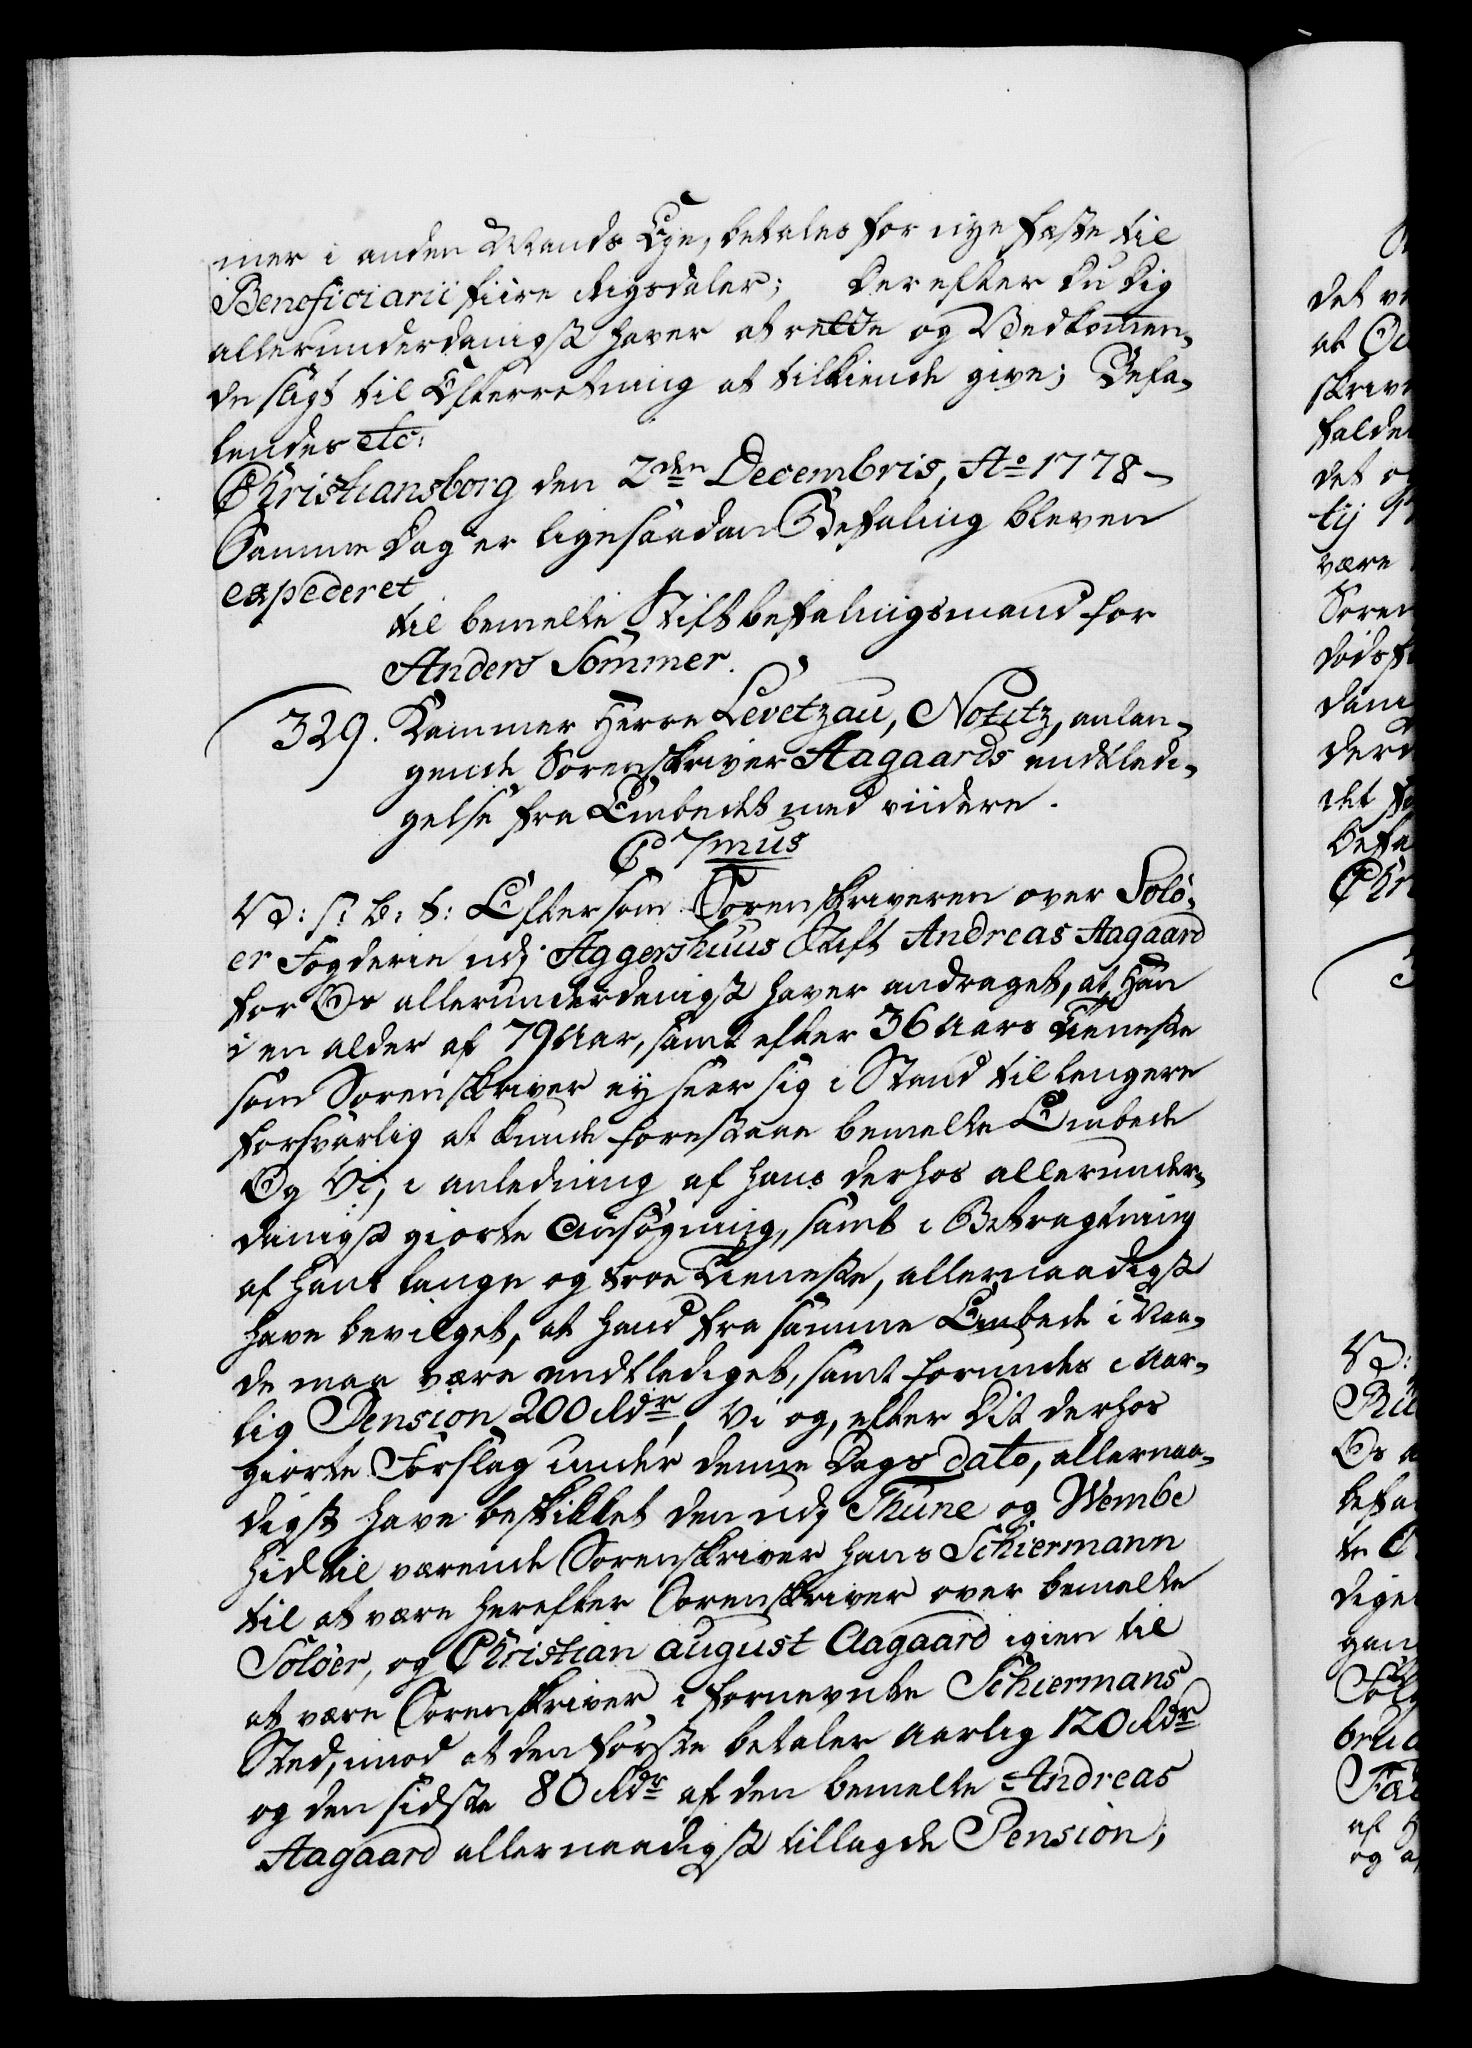 mer i anden Mands Eje, betales for nye fæste til
Beneficiarii fiire Rigsdaler; Derefter Du dig
allerunderdanigst haver at rette og Vedkomen-
de sligt til Efterretning at tilkiende give; Befa-
lendes etc:
Christiansborg den 2den Decembris, Ao 1778-
Samme Dag er ligesaadan Befaling bleven
expederet
til bemelte Stiftbefalingsmand for
Anders Sommer.
329. Kammer Herre Levetzau, Notitz, anlan-
gende Sorenskriver Aagaards endtledi-
gelse fra Embedet med viidere.
C 7mus
V: s: b: t: Eftersom Sorenskriveren over Solø-
er Fogderie udj Aggershuus Stift Andreas Aagaard
for Os allerunderdanigst haver andraget, at Han
i en alder af 79 Aar, samt efter 36 Aars Tieneste
som Sorenskriver ey seer sig i Stand til lengere
forsvarlig at kunde forestaae bemelte Embede
Og Vi, i anledning af hans derhos allerunder-
danigst giorte Ansøgning, samt i Betragtning
af hans lange og troe Tieneste, allernaadigst
have bevilget, at hand fra samme Embede i Naa-
de maa være endtlediget, samt forundes i Aar-
lig Pension 200 Rdr, Vi og, efter Dit derhos
giorte Forslag under denne Dags dato, allernaa-
digst have beskikket den udj Thune og Wembe
hidtil værende Sorenskriver Hans Schiermann
til at være herefter Sorenskriver over bemelte
Soløer, og Christian August Aagaard igien til
at være Sorenskriver i fornevnte Schiermans
Sted, imod at den første betaler Aarlig 120 Rdr
og den sidste 80 Rdr af den bemelte Andreas
Aagaard allernaadigst tillagde Pension;